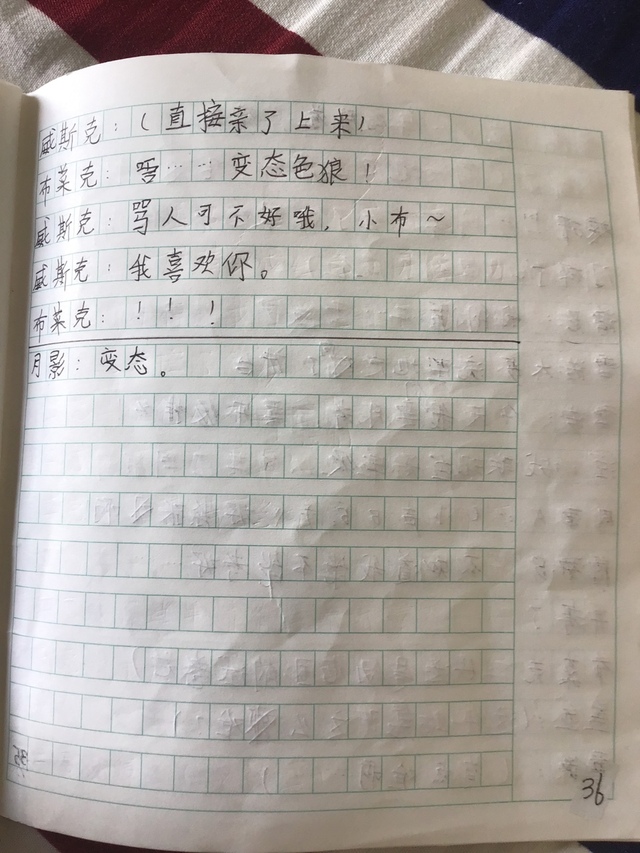 威斯克：（直接亲了上来）
布莱克：唔……变态色狼！
威斯克：骂人可不好哦，小布～
威斯克：我喜欢你。
布莱克：！！！
月影：变态。
36